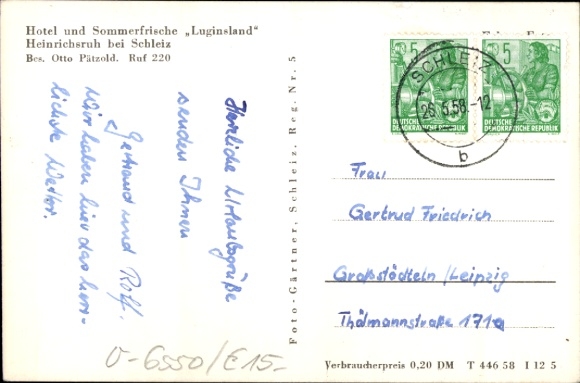 Hotel und Sommerfrische „Luginsland“
Heinrichsruh bei Schleiz
Bes. Otto Pätzold. Ruf 220
Herzliche Urlaubsgrüße
senden Ihnen
Gertraud und Rolf.
Wir haben hier das herr-
lichste Wetter.
Foto-Gärtner, Schleiz. Reg. Nr. 5
5
DEUTSCHE
DEMOKRATISCHE REPUBLIK
5
DEUTSCHE
DEMOKRATISCHE REPUBLIK
SCHLEIZ
26.5.58.-12
b
Frau
Gertrud Friedrich
Großstädteln/Leipzig
Thälmannstraße 171a
0-6550/E15-
Verbraucherpreis 0,20 DM T 446 58 I 12 5